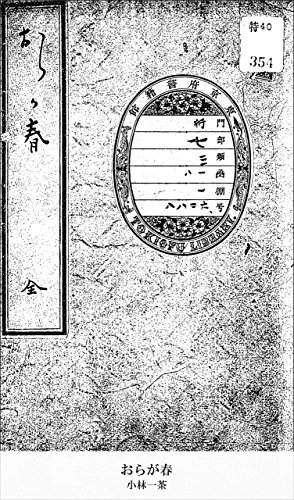 特40
354
おらが春
全
東京府書籍館
門
七 部
三 類
函
一 棚
号
TOKIOFU LIBRARY.
おらが春
小林一茶